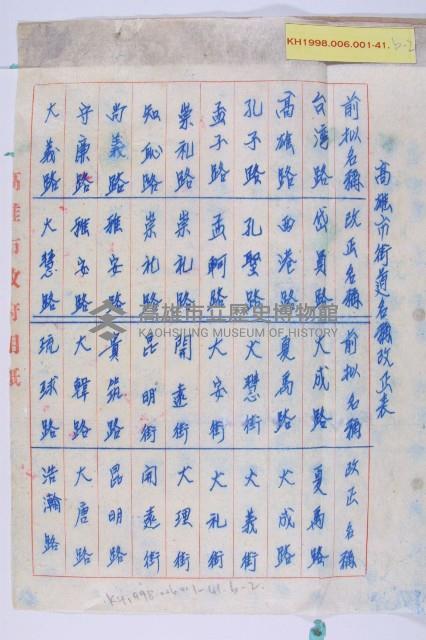 KH1998.006.001-41.b-2
高雄市街道名稱改正表
前拟名稱 改正名稱 前拟名稱 改正名稱
台湾路 岱員路 大成路 夏禹路
高雄路 西港路 夏禹路 大成路
孔子路 孔聖路 大慧街 大義街
孟子路 孟軻路 大安街 大礼街
崇礼路 崇礼路 開遠街 大理街
知恥路 崇礼路 昆明街 開遠街
尚義路 雅安路 貴筑路 昆明路
守廉路 雅安路 大輝路 大唐路
大義路 大慧路 琉球路 浩瀚路
高雄市政府用紙
高雄市立歷史博物館
KAOHSIUNG MUSEUM OF HISTORY
KH1998.006.001-41.b-2.